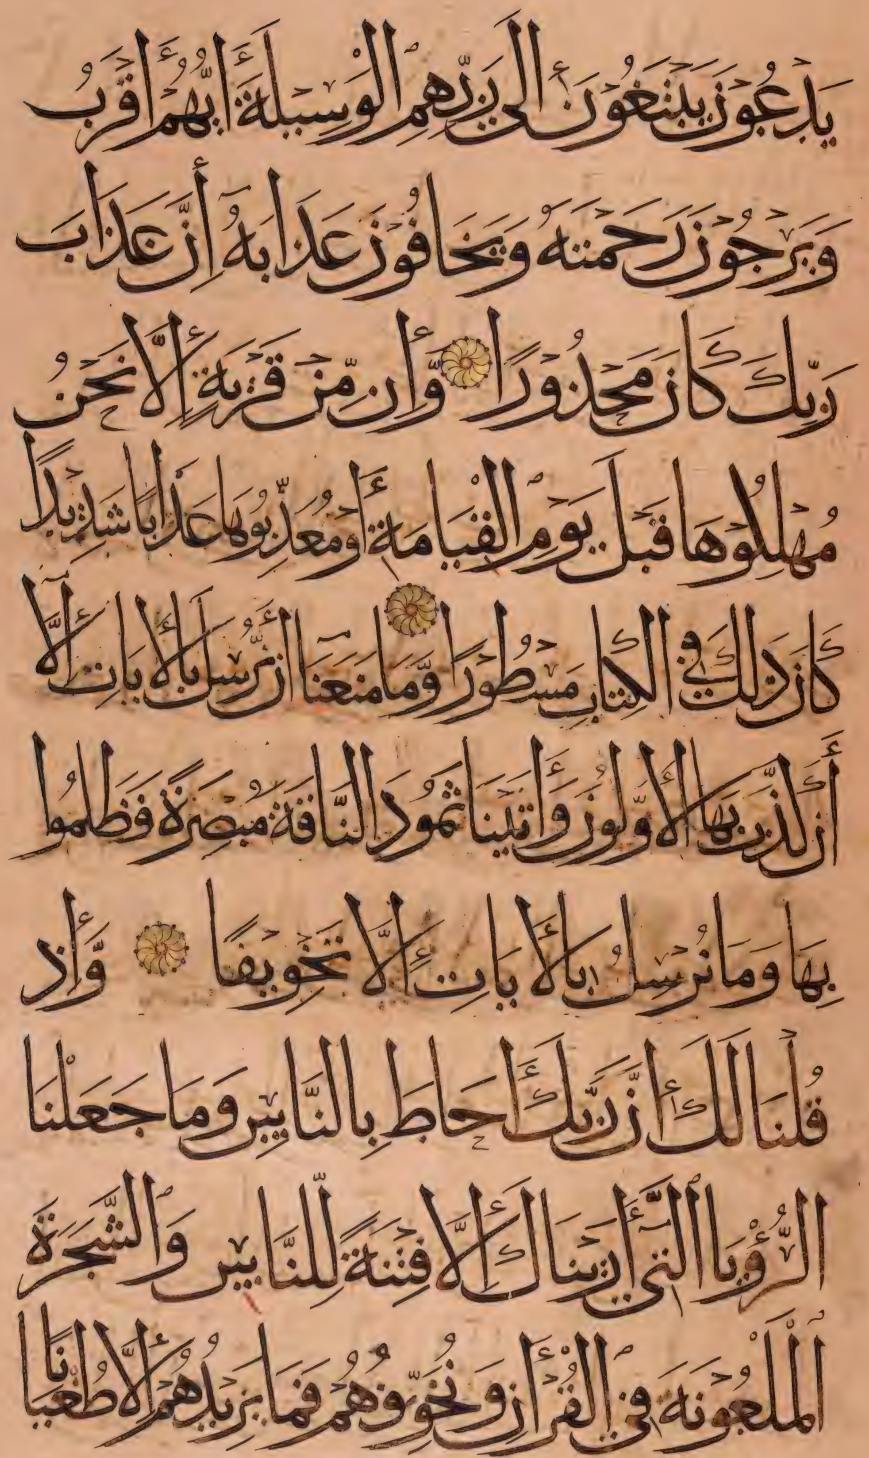 يَدْعُوْنَ يَبْتَغُوْنَ اِلَى رَبِّهِمِ الْوَسِيْلَةَ اَيُّهُمْ اَقْرَبُ
وَيَرْجُوْنَ رَحْمَتَهُ وَيَخَافُوْنَ عَذَابَهُ اِنَّ عَذَابَ
رَبِّكَ كَانَ مَحْذُوْرًا وَّاِنْ مِّنْ قَرْيَةٍ اِلَّا نَحْنُ
مُهْلِكُوْهَا قَبْلَ يَوْمِ الْقِيَامَةِ اَوْ مُعَذِّبُوهَا عَذَابًا شَدِيْدًا
كَانَ ذٰلِكَ فِي الْكِتَابِ مَسْطُوْرًا وَّمَا مَنَعَنَا اَنْ نُّرْسِلَ بِالْاٰيَاتِ اِلَّا
اَنْ كَذَّبَ بِهَا الْاَوَّلُوْنَ وَاٰتَيْنَا ثَمُوْدَ النَّاقَةَ مُبْصِرَةً فَظَلَمُوْا
بِهَا وَمَا نُرْسِلُ بِالْاٰيَاتِ اِلَّا تَخْوِيْفًا وَّاِذْ
قُلْنَا لَكَ اِنَّ رَبَّكَ اَحَاطَ بِالنَّاسِ وَمَا جَعَلْنَا
الرُّؤْيَا الَّتِيْ اَرَيْنَاكَ اِلَّا فِتْنَةً لِّلنَّاسِ وَالشَّجَرَةَ
الْمَلْعُوْنَةَ فِي الْقُرْاٰنِ وَنُخَوِّفُهُمْ فَمَا يَزِيْدُهُمْ اِلَّا طُغْيَانًا